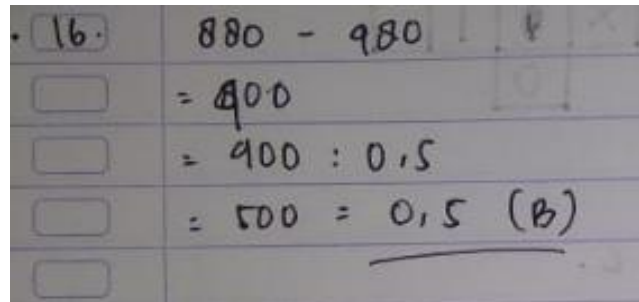 16. 880 - 980
= 400
= 900 : 0,5
= 500 = 0,5 (B)